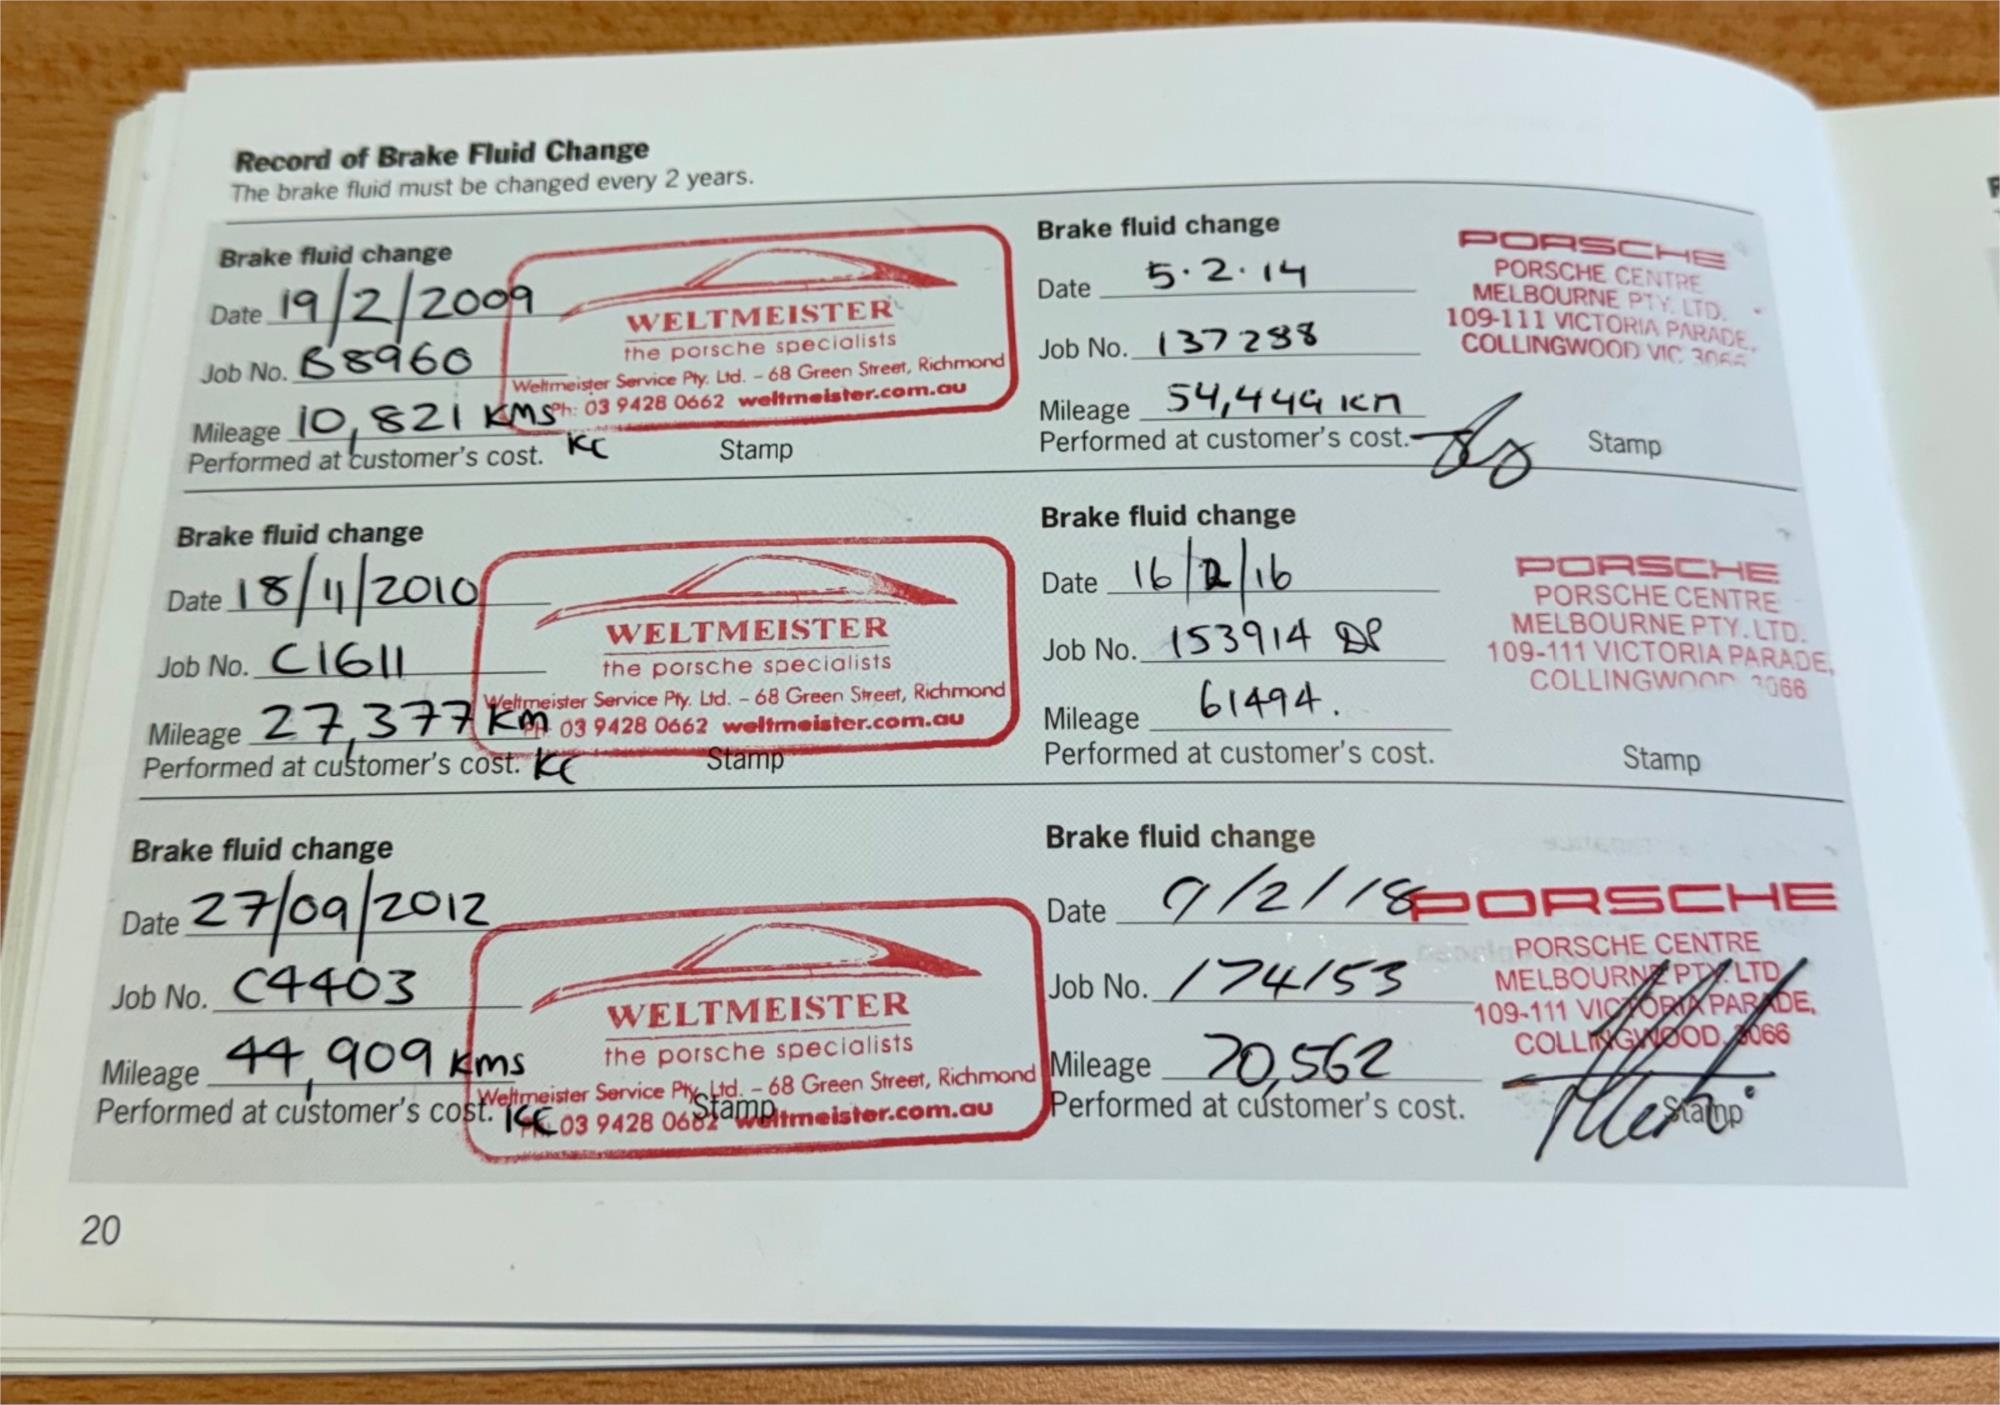 Record of Brake Fluid Change
The brake fluid must be changed every 2 years.
Brake fluid change
Date 19/2/2009
Job No. B8960
Mileage 10,821 KMS
Performed at customer's cost. KC
WELTMEISTER
the porsche specialists
Weltmeister Service Pty. Ltd. – 68 Green Street, Richmond
Ph: 03 9428 0662 weltmeister.com.au
Stamp
Brake fluid change
Date 18/11/2010
Job No. C1611
Mileage 27,377 KM
Performed at customer's cost. KC
WELTMEISTER
the porsche specialists
Weltmeister Service Pty. Ltd. – 68 Green Street, Richmond
PH: 03 9428 0662 weltmeister.com.au
Stamp
Brake fluid change
Date 27/09/2012
Job No. C4403
Mileage 44,909 KMS
Performed at customer's cost. KC
WELTMEISTER
the porsche specialists
Weltmeister Service Pty. Ltd. – 68 Green Street, Richmond
03 9428 0662 weltmeister.com.au
Stamp
Brake fluid change
Date 5.2.14
Job No. 137288
Mileage 54,449 KM
Performed at customer's cost.
PORSCHE
PORSCHE CENTRE
MELBOURNE PTY. LTD.
109-111 VICTORIA PARADE,
COLLINGWOOD VIC 3066
Stamp
Brake fluid change
Date 16/2/16
Job No. 153914 DP
Mileage 61494.
Performed at customer's cost.
PORSCHE
PORSCHE CENTRE
MELBOURNE PTY. LTD.
109-111 VICTORIA PARADE,
COLLINGWOOD 3066
Stamp
Brake fluid change
Date 9/2/18
Job No. 174153
Mileage 70,562
Performed at customer's cost.
PORSCHE
PORSCHE CENTRE
MELBOURNE PTY. LTD
109-111 VICTORIA PARADE,
COLLINGWOOD, 3066
Stamp
20